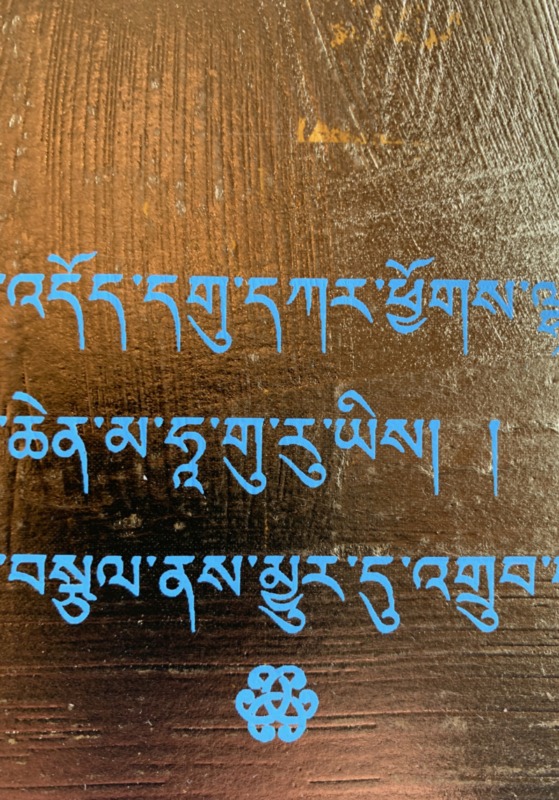 འདོད་དགུ་དཀར་ཕྱོགས་
ཆེན་མ་ཧཱ་གུ་རུ་ཡིས། །
བསྐུལ་ནས་མྱུར་དུ་འགྲུབ་